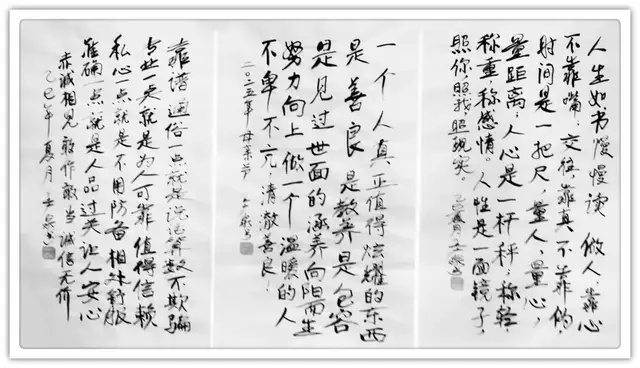 人生如书慢慢读做人靠心
不靠嘴，交往靠真不靠伪，
时间是一把尺，量人，量心，
量距离，人心是一杆秤，称轻，
称重，称感情。人性是一面镜子，
照你，照我，照现实
一个人真正值得炫耀的东西
是善良是教养是包容
是见过世面的涵养向阳而生
努力向上做一个温暖的人
不卑不亢，清澈善良！
二〇二五年母亲节
靠谱通俗一点就是说话算数不欺骗
专业一点就是为人可靠值得信赖
私心一点就是不用防备相处舒服
准确一点就是人品过关让人安心
赤诚相见敢作敢当诚信无价
乙巳年夏月